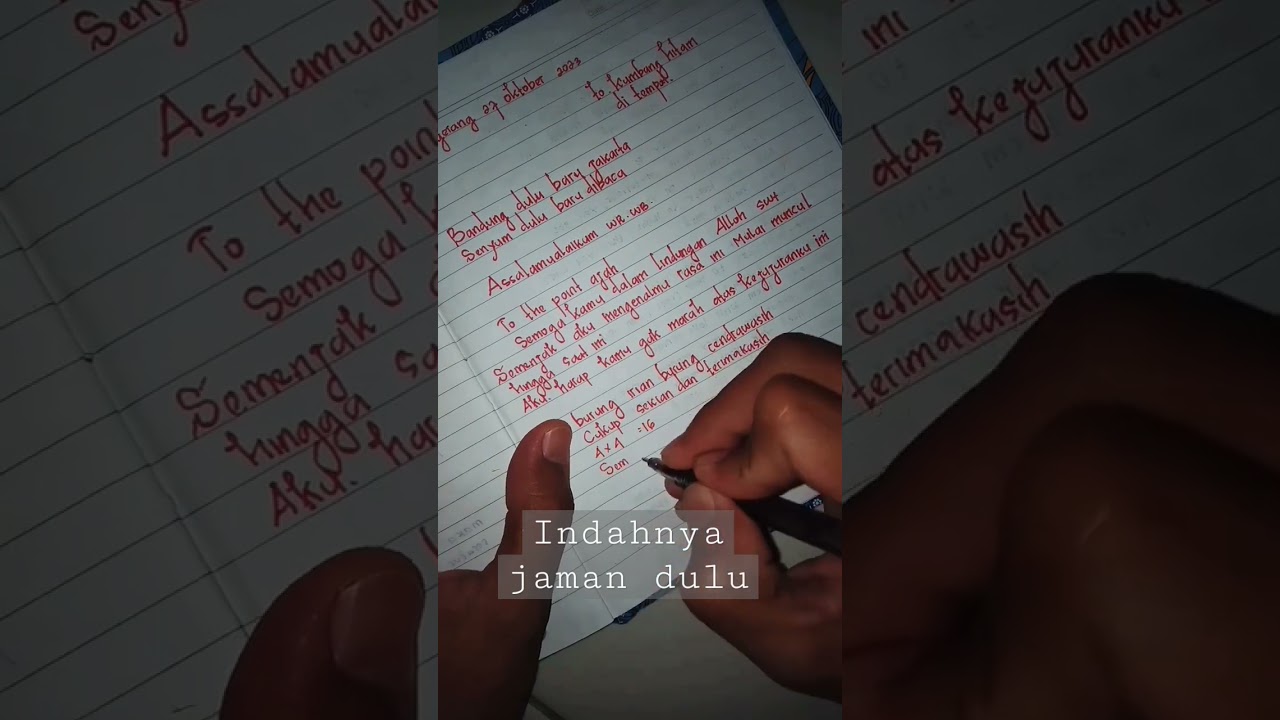 27 Oktober 2023
to Kumbang hitam
di tempat.
Bandung dulu baru jakarta
Senyum dulu baru dibaca
Assalamualaikum WR. WB.
To the point ajah
Semoga kamu dalam lindungan Alloh swt
Semenjak aku mengenalmu rasa ini Mulai muncul
hingga saat ini
Aku. harap kamu gak marah atas kejujuranku ini
burung irian burung cendrawasih
Cukup sekian dan terimakasih
4 x 4 = 16
Sem
Indahnya
jaman dulu